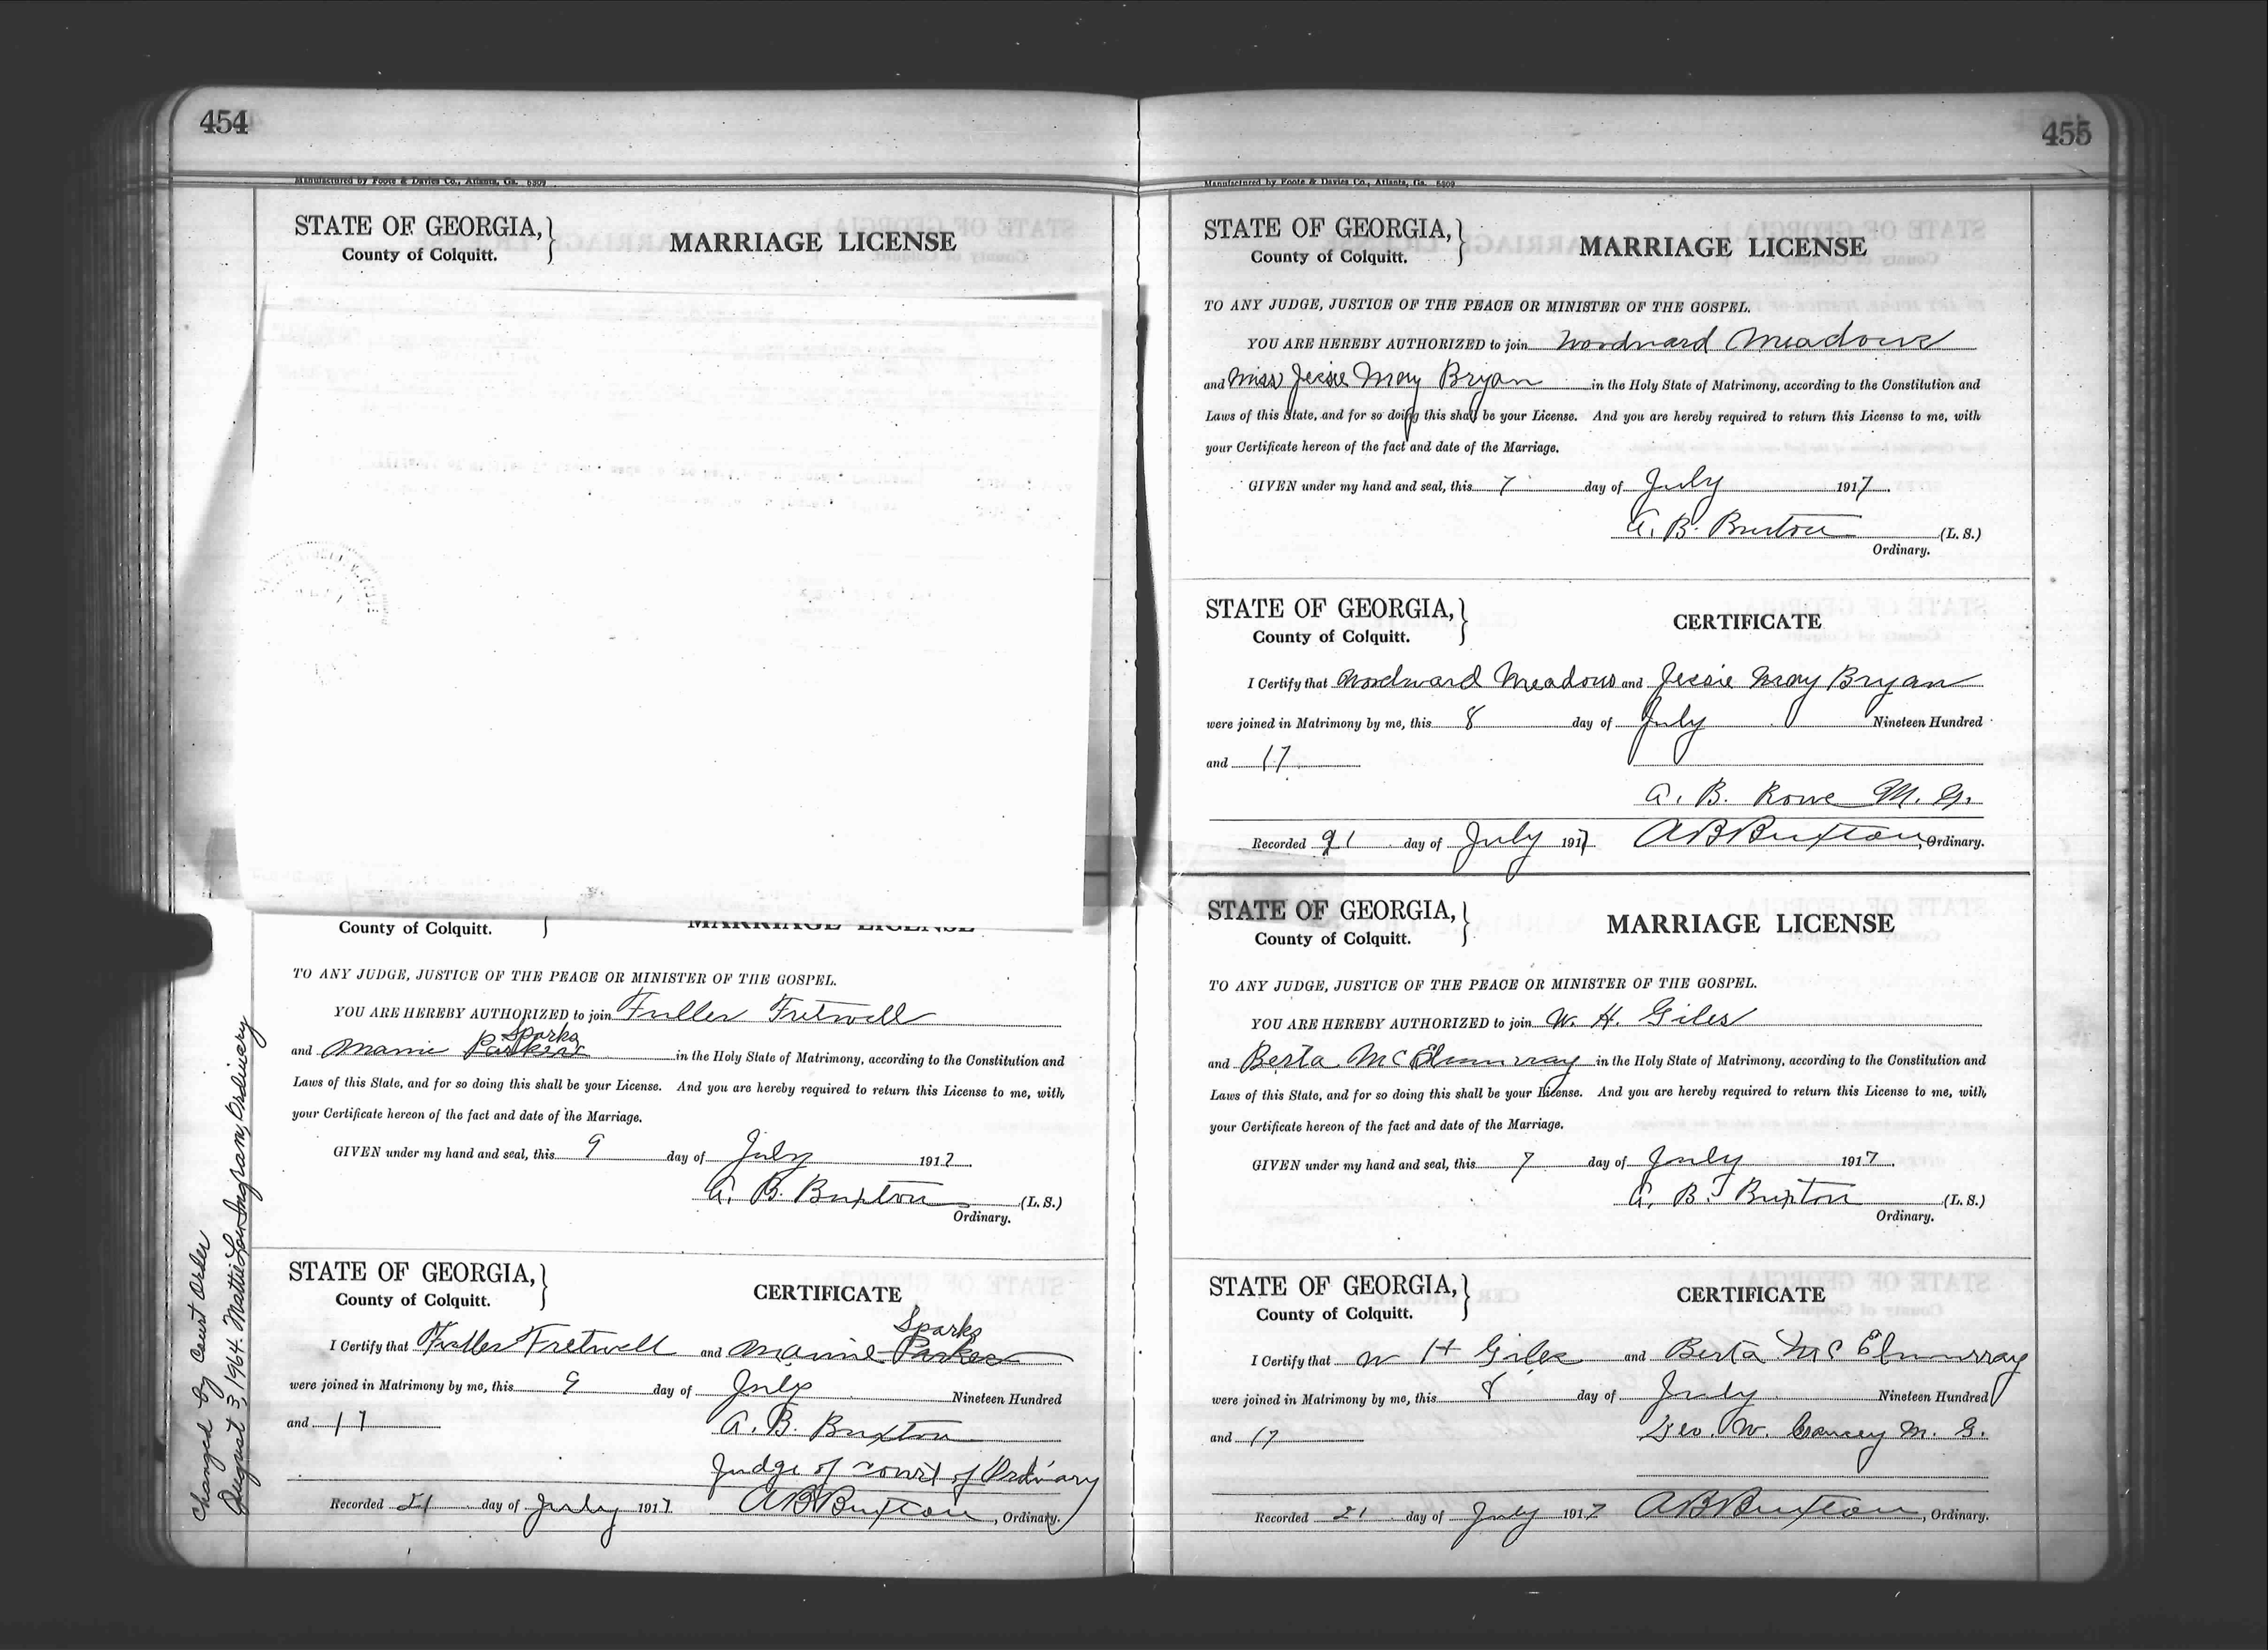 454
Manufactured by Foote & Davies Co., Atlanta, Ga. 6309
STATE OF GEORGIA,
County of Colquitt.
MARRIAGE LICENSE
County of Colquitt.
MARRIAGE LICENSE
TO ANY JUDGE, JUSTICE OF THE PEACE OR MINISTER OF THE GOSPEL.
YOU ARE HEREBY AUTHORIZED to join Fuller Fretwell
Sparks
and Mamie in the Holy State of Matrimony, according to the Constitution and
Laws of this State, and for so doing this shall be your License. And you are hereby required to return this License to me, with
your Certificate hereon of the fact and date of the Marriage.
GIVEN under my hand and seal, this 9 day of July 1917
A. B. Buxton (L. S.)
Ordinary.
STATE OF GEORGIA,
County of Colquitt.
CERTIFICATE
Sparks
I Certify that Fuller Fretwell and Mamie Parker
were joined in Matrimony by me, this 9 day of July Nineteen Hundred
and 17
A. B. Buxton
Judge of Court of Ordinary
Recorded 21 day of July 1917 A B Buxton, Ordinary.
Changed by Court Order
August 3, 1964. Mattie Lou Ingram, Ordinary
455
Manufactured by Foote & Davies Co., Atlanta, Ga. 6309
STATE OF GEORGIA,
County of Colquitt.
MARRIAGE LICENSE
TO ANY JUDGE, JUSTICE OF THE PEACE OR MINISTER OF THE GOSPEL.
YOU ARE HEREBY AUTHORIZED to join Woodward Meadows
and Miss Jessie May Bryan in the Holy State of Matrimony, according to the Constitution and
Laws of this State, and for so doing this shall be your License. And you are hereby required to return this License to me, with
your Certificate hereon of the fact and date of the Marriage.
GIVEN under my hand and seal, this 7 day of July 1917.
A. B. Buxton (L. S.)
Ordinary.
STATE OF GEORGIA,
County of Colquitt.
CERTIFICATE
I Certify that Woodward Meadows and Jessie May Bryan
were joined in Matrimony by me, this 8 day of July Nineteen Hundred
and 17
A. B. Rowe M. G.
Recorded 21 day of July 1917 A B Buxton, Ordinary.
STATE OF GEORGIA,
County of Colquitt.
MARRIAGE LICENSE
TO ANY JUDGE, JUSTICE OF THE PEACE OR MINISTER OF THE GOSPEL.
YOU ARE HEREBY AUTHORIZED to join W. H. Giles
and Berta McElmurray in the Holy State of Matrimony, according to the Constitution and
Laws of this State, and for so doing this shall be your License. And you are hereby required to return this License to me, with
your Certificate hereon of the fact and date of the Marriage.
GIVEN under my hand and seal, this 7 day of July 1917.
A. B. Buxton (L. S.)
Ordinary.
STATE OF GEORGIA,
County of Colquitt.
CERTIFICATE
I Certify that W H Giles and Berta McElmurray
were joined in Matrimony by me, this 8 day of July Nineteen Hundred
and 17
Geo. W. M. G.
Recorded 21 day of July 1917 A B Buxton, Ordinary.